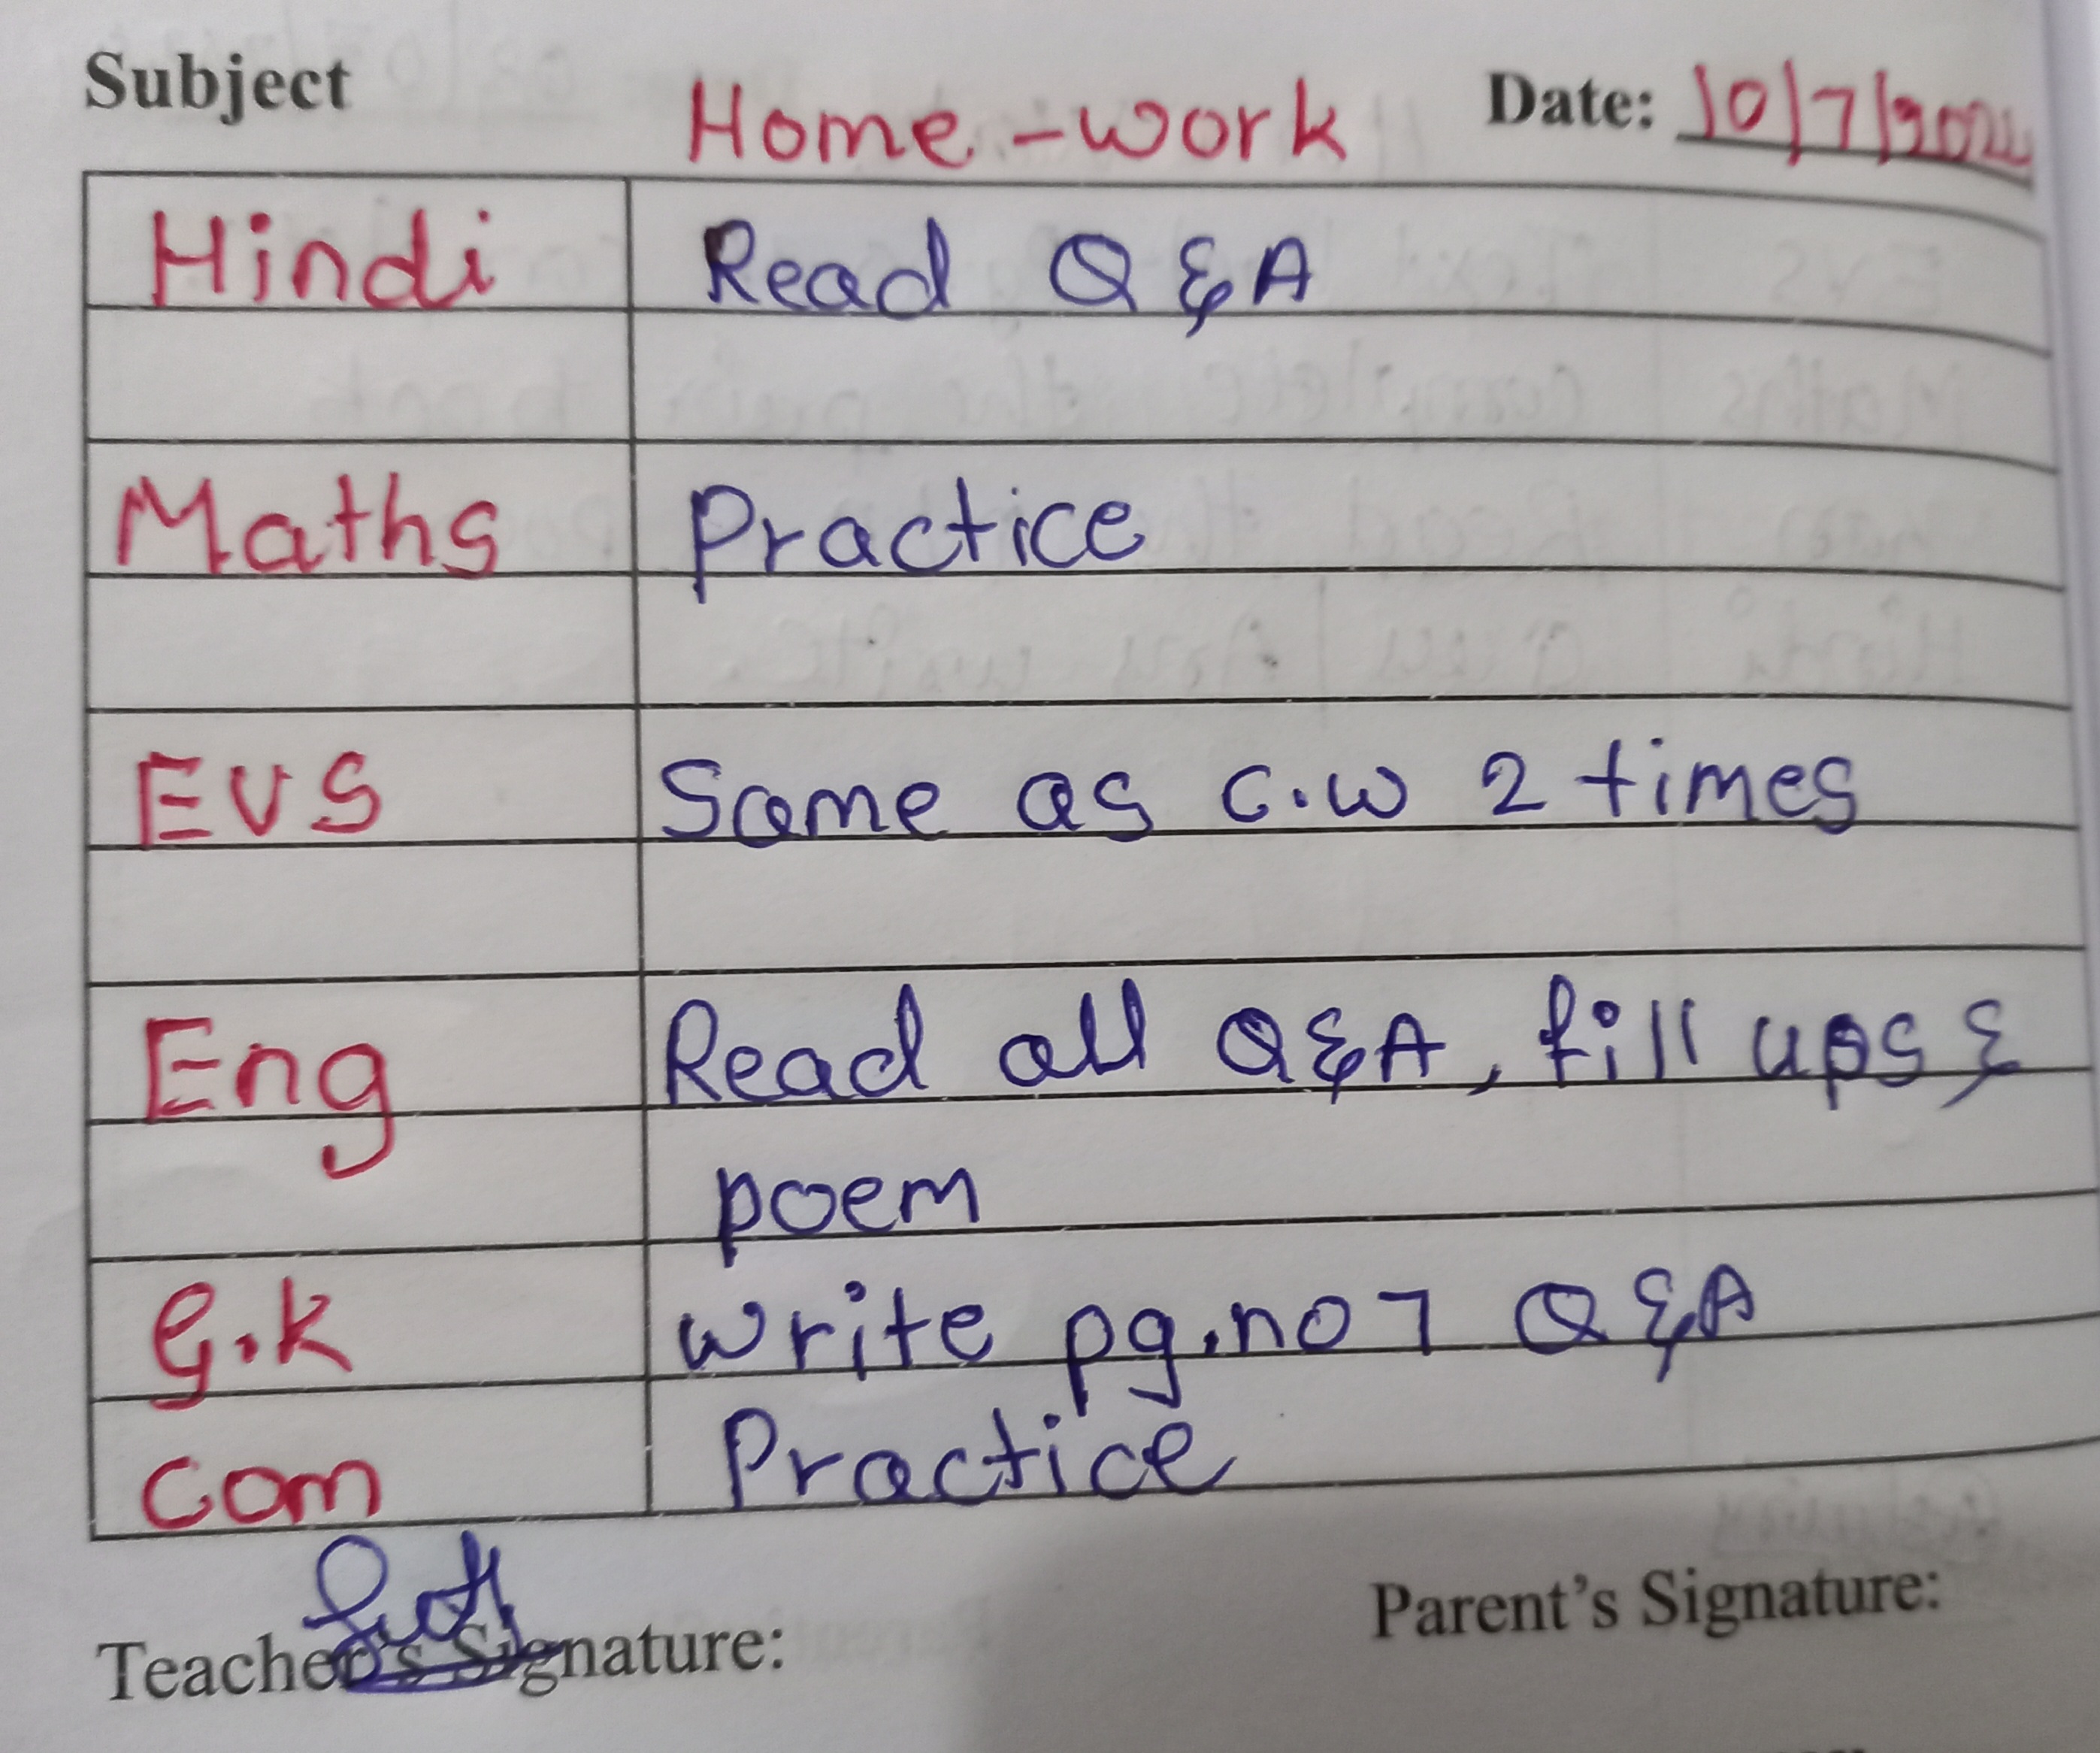 Subject Home-work Date: 10/7/2024
Hindi Read Q & A
Maths Practice
EVS Same as C.W 2 times
Eng Read all Q & A, fill ups &
poem
G.K Write pg.no 7 Q & A
Com Practice
Teacher's Signature: Parent's Signature: